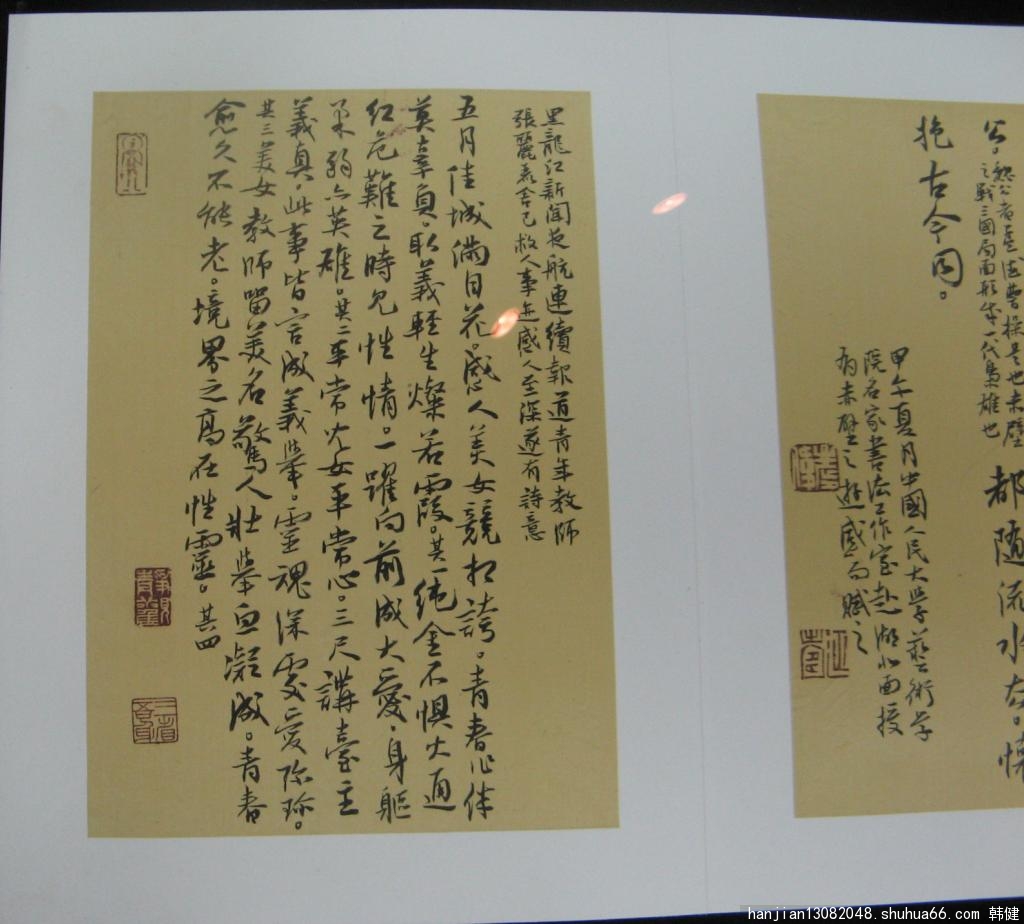 公，愁公者孟德曹操是也赤壁
之戰三國局面形成一代梟雄也
都随流水去。懷
抱古今同。
甲午夏月中國人民大學藝術學
院名家書法工作室赴湖北面授
為赤壁之遊感而賦之
黑龍江新聞夜航連續報道青年教師
張麗莉舍己救人事迹感人至深遂有詩意
五月佳城滿目花。感人美女競相誇。青春心体
莫辜負，取義輕生燦若霞。其一純金不懼火通
红危難之時見性情。一躍向前成大愛，身軀
柔弱亦英雄。其二平常少女平常心。三尺講臺主
義真，此事皆言成義舉。靈魂深處愛弥珍。
其三美女教師留美名驚人壯舉血凝成。青春
愈久不能老。境界之高在性靈。其四
hanjian13082048.shuhua66.com 韩健